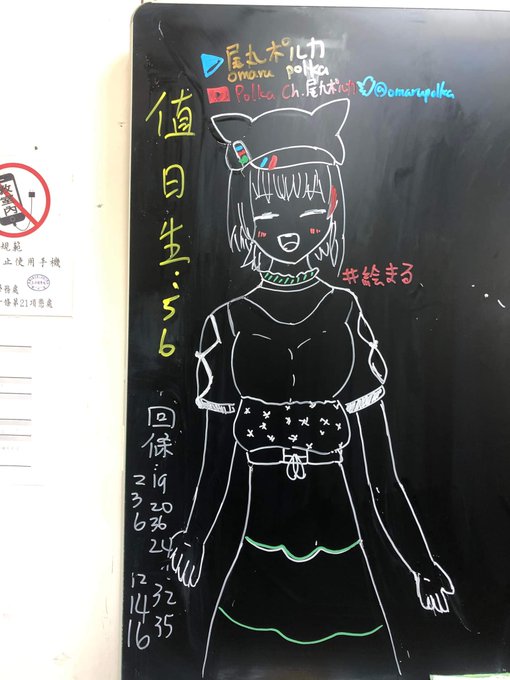 尾丸ポルカ
omaru polka
Polka Ch.尾丸ポルカ @omarupolka
値日生:56
#絵まる
回條
19
2
3 20
6 36
24
12 32
14 35
16
教室內
規範
止使用手機
務處
條第21項懲處